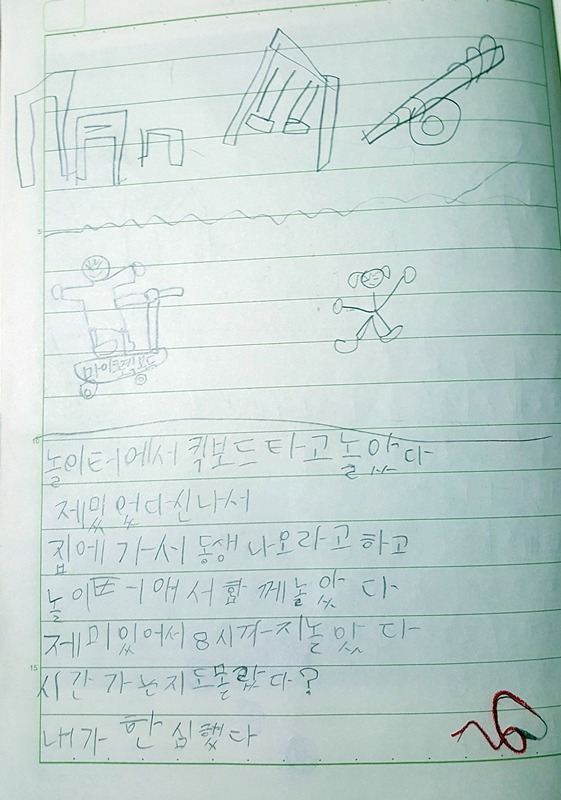 마이크로킥보드
놀이터에서 킥보드 타고 놀았다
제밌었다 신나서
집에 가서 동생 나오라고 하고
놀이터애서 함께 놀았다
제미있어서 8시까지 놀았다
시간 가는지도 몰랐다?
내가 한심했다